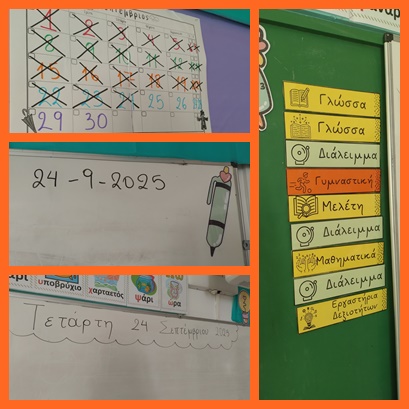 1 2 3
8 9
15 16 17 18
22 23 24 25 26
29 30
24 -9-2025
υποβρύχιο χαρταετός ψάρι ώρα
Τετάρτη 24 Σεπτέμβριου
Γλώσσα
Γλώσσα
Διάλειμμα
Γυμναστική
Μελέτη
Διάλειμμα
Μαθηματικά
Διάλειμμα
Εργαστήρια
Δεξιοτήτων